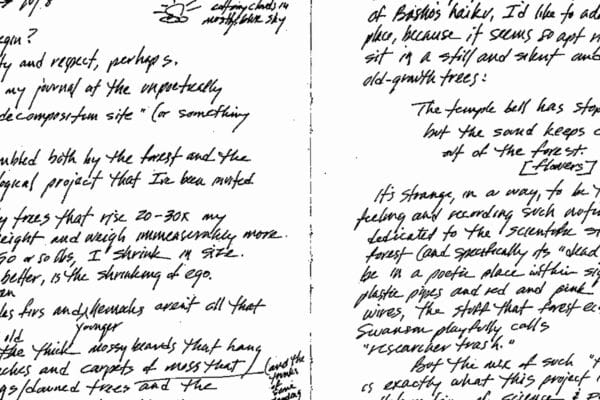 cotton clouds in
mostly blue sky
egin?
ty and respect, perhaps.
my journal at the unpoetically
decomposition site" (or something
mbled both by the forest and the
logical project that I've been invited
y trees that rise 20-30x my
eight and weigh immeasurably more.
so or so lbs, I shrink in size.
better, is the shrinking of ego.
las firs and hemlocks aren't all that
old
younger
the thick mossy beards that hang
ches and carpets of moss that
gs/downed trees and the
(and the
of Basho's haiku, I'd like to
place, because it seems so apt
sit in a still and silent
old-growth trees:
The temple bell has stop
but the sound keeps
out of the forest.
[flowers]
It's strange, in a way, to be
feeling and recording such
dedicated to the scientific
forest (and specifically its "dead
be in a poetic place within
plastic pipes and red and pink
wires, the stuff that forest
Swanson playfully calls
"researcher trash."
But the mix of such
is exactly what this project
of science